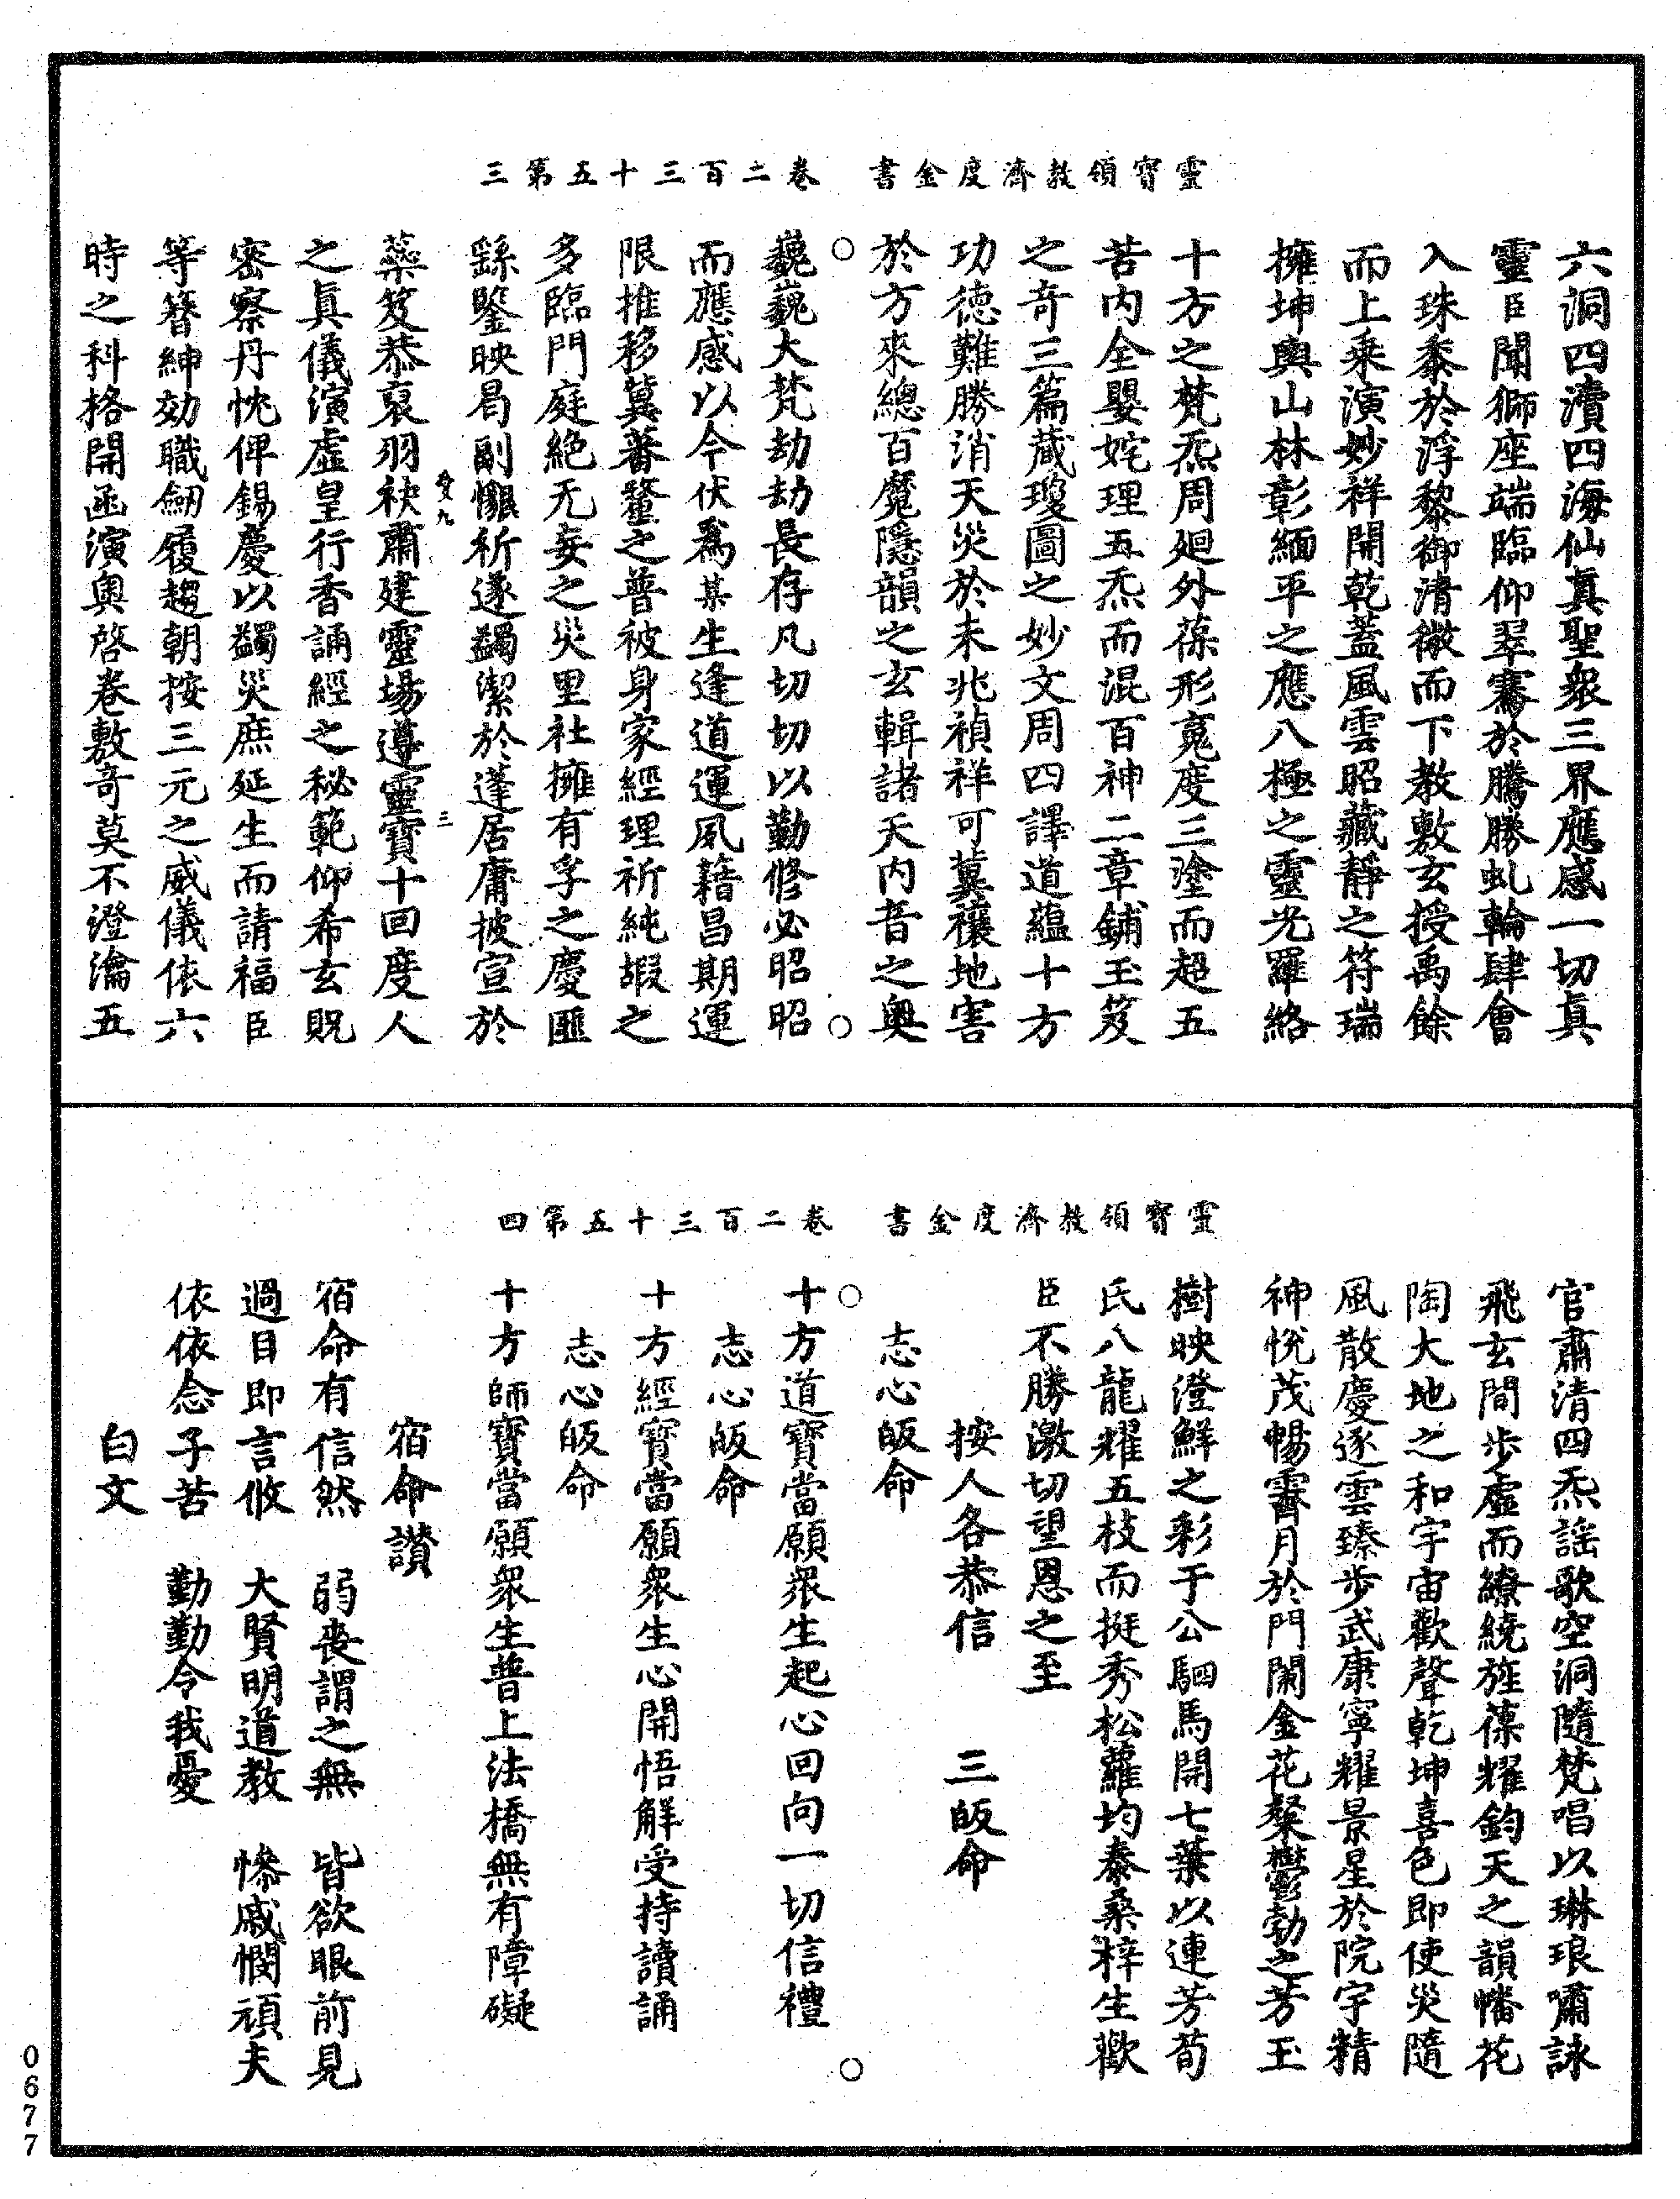 靈寶領教濟度金書　卷二百三十五第三
六洞四瀆四海仙真聖衆三界應感一切真
靈臣聞獅座端臨仰翠騫於騰勝虬輪肆會
入珠黍於浮黎御清微而下教敷玄授禹餘
而上乘演妙祥開乾蓋風雲昭藏靜之符瑞
擁坤輿山林彰緬平之應八極之靈光羅絡
十方之梵炁周廻外葆形䰟度三塗而超五
苦内全嬰姹理五炁而混百神二章鋪玉笈
之奇三篇蕆瓊圖之妙文周四譯道蘊十方
功德難勝消天災於未兆禎祥可冀禳地害
於方來總百魔隱韻之玄輯諸天内音之奥
○　○
巍巍大梵劫劫長存凡切切以勤修必昭昭
而應感以今伏爲某生逢道運夙籍昌期運
限推移冀蕃釐之普被身家經理祈純嘏之
多臨門庭絶无妄之災里社擁有孚之慶匪
繇鑒映曷副懇祈遂蠲潔於蓬居庸披宣於
㝵九　三
蘂笈恭裒羽袂肅建靈場遵靈寶十回度人
之真儀演虛皇行香誦經之秘範仰希玄貺
密察丹忱俾錫慶以蠲災庶延生而請福臣
等簪紳効職劒履趨朝按三元之威儀依六
時之科格開函演奥啓卷敷奇莫不澄瀹五
靈寶領教濟度金書　卷二百三十五第四
官肅清四炁謡歌空洞隨梵唱以琳琅嘯詠
飛玄間步虛而繚繞旌葆耀鈞天之韻幡花
陶大地之和宇宙歡聲乾坤喜色即使災隨
風散慶逐雲臻步武康寧耀景星於院宇精
神悅茂暢霽月於門闌金花粲欝勃之芳玉
樹映澄鮮之彩于公駟馬開七葉以連芳荀
氏八龍耀五枝而挺秀松蘿均泰桑梓生歡
臣不勝激切望恩之至
按人各恭信　三皈命
志心皈命
○　○
十方道寶當願衆生起心回向一切信禮
志心皈命
十方經寶當願衆生心開悟解受持讀誦
志心皈命
十方師寶當願衆生普上法橋無有障礙
宿命讃
宿命有信然　弱喪謂之無　皆欲眼前見
過目即言攸　大賢明道教　慘戚憫頑夫
依依念子苦　勤勤令我憂
白文
0677